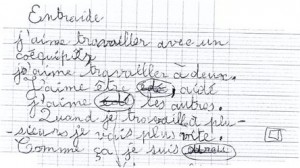 Entraide
j'aime travailler avec un
coéquipier
j'aime travailler à deux.
J'aime être aidé
J'aime les autres.
Quand je travaille à plu-
sieurs je vais plus vite.
Comme ça je suis